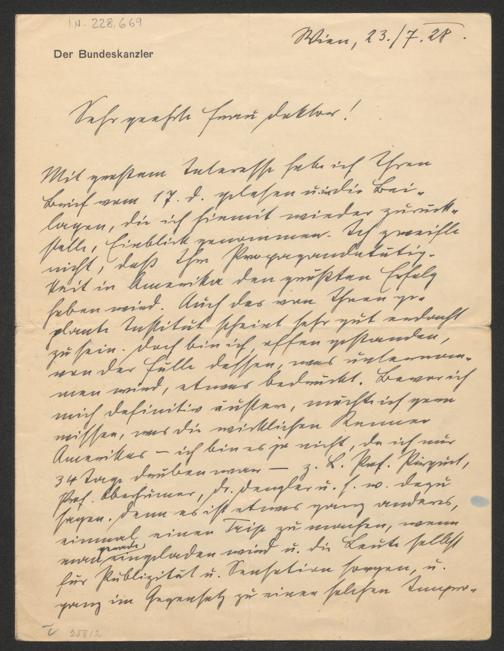 IN. 228.669
Wien, 23./7. 28.
Der Bundeskanzler
Sehr geehrte Frau Doktor!
Mit großem Interesse habe ich Ihren
Brief vom 17. d. gelesen u. in die Bei-
lagen, die ich hiemit wieder zurück-
stelle, Einblick genommen. Ich zweifle
nicht, daß Ihre Propagandatätig-
keit in Amerika den größten Erfolg
haben wird. Auch das von Ihnen ge-
plante Institut scheint sehr gut erdacht
zu sein. Doch bin ich, offen gestanden,
von der Fülle dessen, was unternom-
men wird, etwas bedrückt. Bevor ich
mich definitiv äußere, möchte ich gern
wissen, was die wirklichen Kenner
Amerikas – ich bin es ja nicht, da ich nur
34 Tage drüben war – z. B. Prof. Pirquet,
Prof. Dr. Dengler u. s. w. dazu
sagen. Denn es ist etwas ganz anderes,
einmal einen Trip zu machen, wenn
man gerade eingeladen wird u. die Leute selbst
für Publizität u. Sensation sorgen, u.
ganz im Gegensatz zu einer solchen
258/2